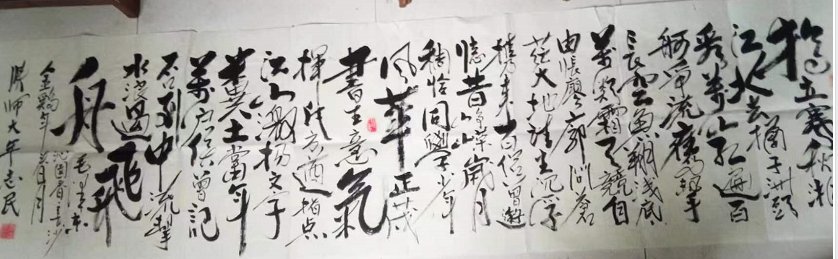 独立寒秋湘
江北去橘子洲头
看万山红遍百
舸争流鹰击
长空鱼翔浅底
万类霜天竞自
由怅寥廓问苍
茫大地谁主沉浮
携来百侣曾游
忆昔峥嵘岁月
稠恰同学少年
风华正茂
書生意氣
挥斥方遒指点
江山激扬文字
粪土當年
萬户侯曾记
否到中流击
水浪遏飛
舟
毛泽东
沁园春长沙
年志民